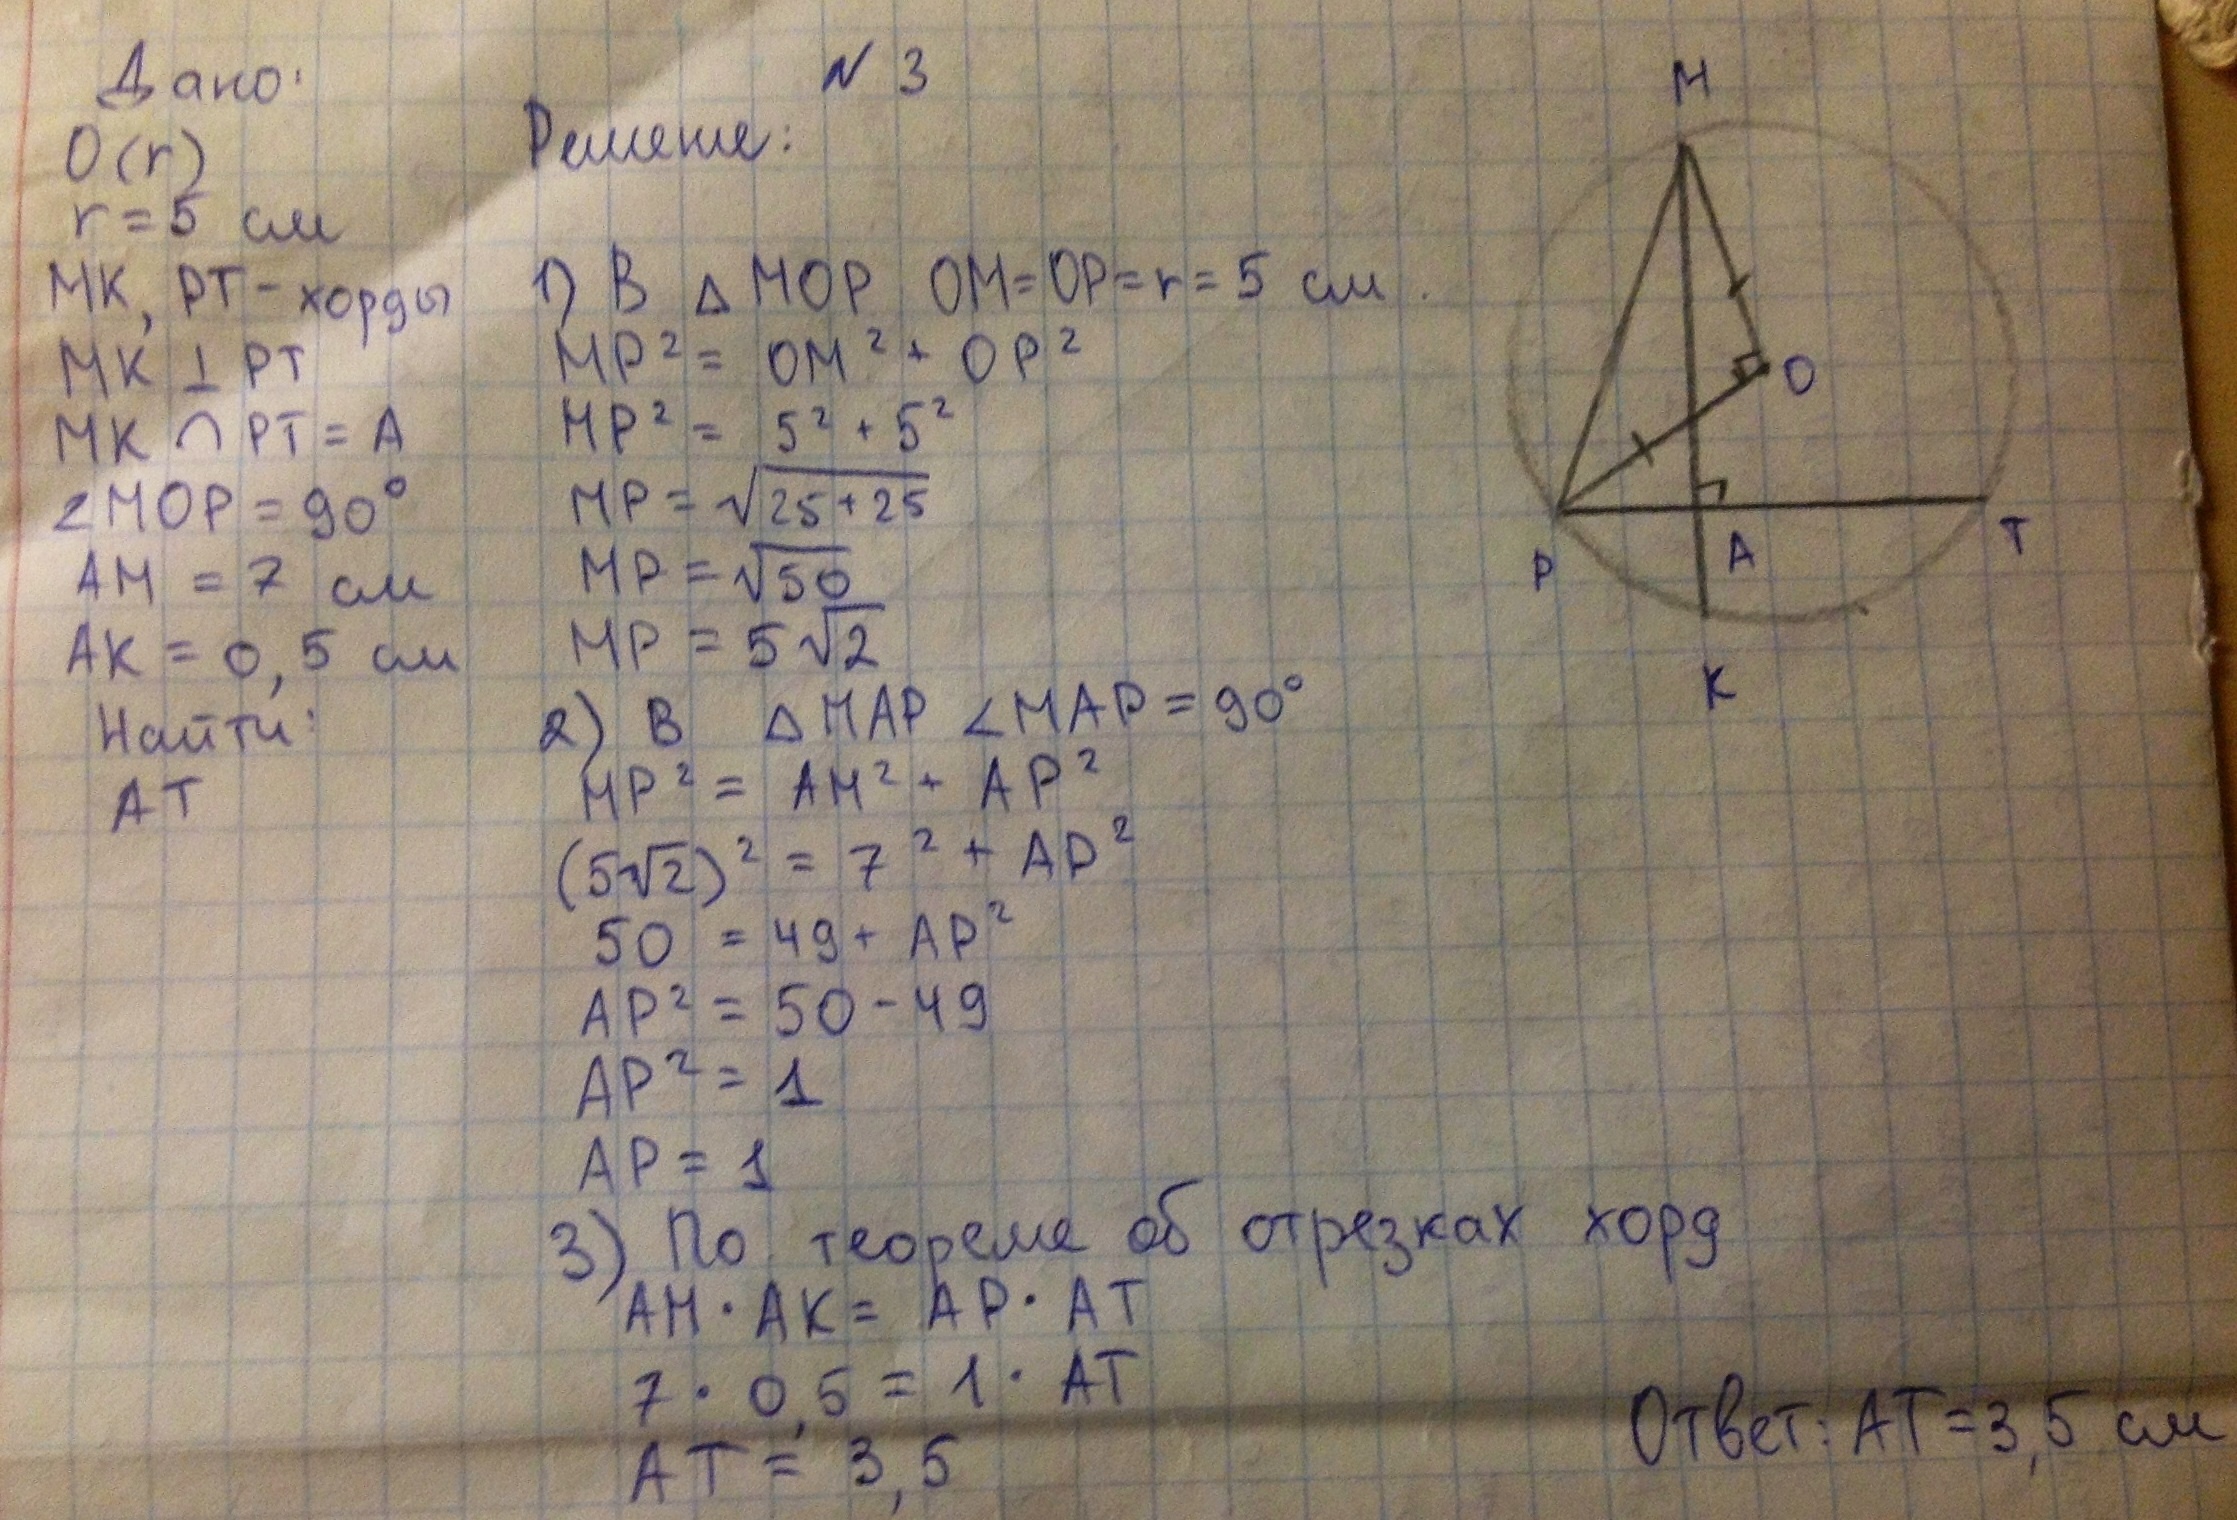 N 3
Дано:
O(r)
r = 5 см
MK, PT - хорды
MK ⊥ PT
MK ∩ PT = A
∠MOP = 90°
AM = 7 см
AK = 0,5 см
Найти:
AT
Решение:
1) В △ MOP OM = OP = r = 5 см.
MP² = OM² + OP²
MP² = 5² + 5²
MP = √25 + 25
MP = √50
MP = 5√2
2) В △ MAP ∠MAP = 90°
MP² = AM² + AP²
(5√2)² = 7² + AP²
50 = 49 + AP²
AP² = 50 - 49
AP² = 1
AP = 1
3) По теореме об отрезках хорд
AM · AK = AP · AT
7 · 0,5 = 1 · AT
AT = 3,5
Ответ: AT = 3,5 см
M
O
P
A
T
K